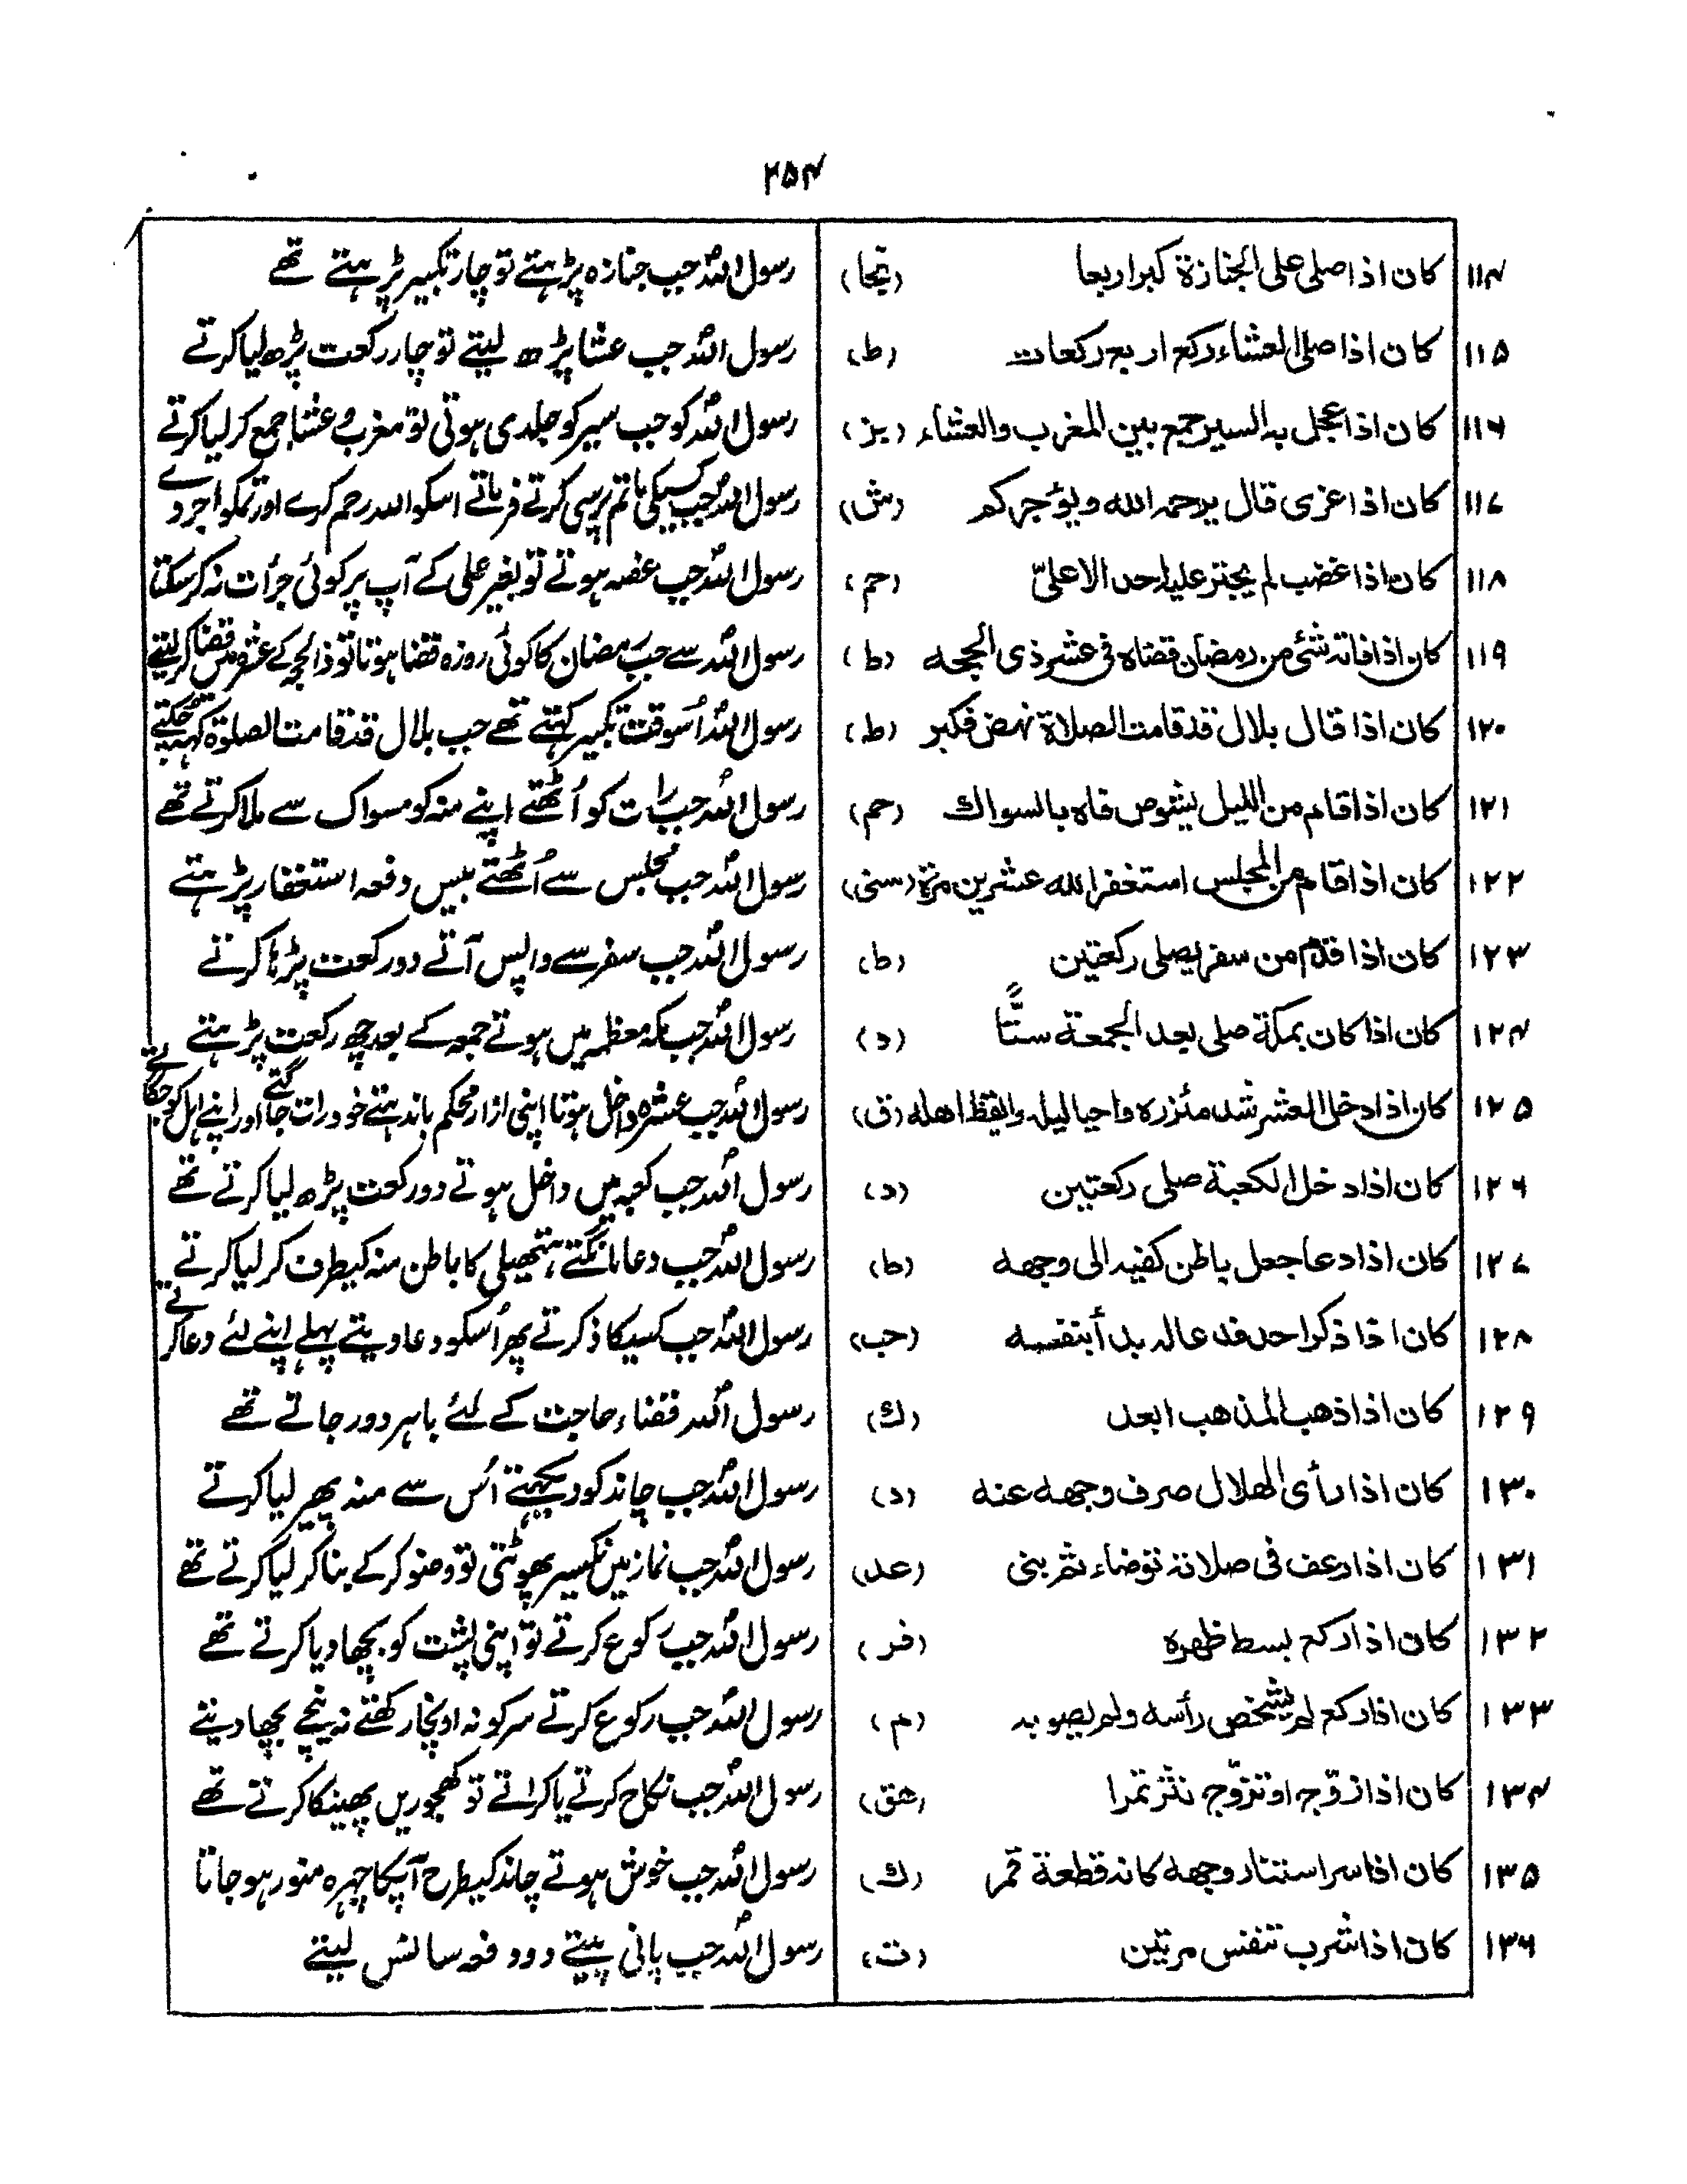 ۲۵۴
۱۱۴ کان اذا صلی علی الجنازة کبر اربعا (نجا) رسول اللہؐ جب جنازہ پڑہتے تو چار تکبیر پڑہتے تھے
۱۱۵ کان اذا صلی العشاء رکع اربع رکعات (ط) رسول اللہؐ جب عشا پڑھ لیتے تو چار رکعت پڑھ لیا کرتے
۱۱۶ کان اذا عجل به السیر جمع بین المغرب والعشاء (بز) رسول اللہؐ کو جب سیر کو جلدی ہوتی تو مغرب و عشا جمع کر لیا کرتے
۱۱۷ کان اذا عزی قال یرحمه الله ویؤجرکم (ش) رسول اللہؐ جب کسیکی ماتم پرسی کرتے فرماتے اسکو اللہ رحم کرے اور تمکو اجر دے
۱۱۸ کان اذا غضب لم یجتر علیه احد الا علیّ (حم) رسول اللہؐ جب غصہ ہوتے تو بغیر علی کے آپ پر کوئی جرأت نہ کر سکتا
۱۱۹ کان اذا فاته شئ من رمضان قضاه فی عشر ذی الحجه (ط) رسول اللہؐ سے جب رمضان کا کوئی روزہ قضا ہوتا تو ذالحجہ کے عشرہ میں قضا کر لیتے
۱۲۰ کان اذا قال بلال قد قامت الصلاة نهض فکبر (ط) رسول اللہؐ اُسوقت تکبیر کہتے تھے جب بلال قد قامت الصلوۃ کہہ چکتے
۱۲۱ کان اذا قام من اللیل یشوص فاه بالسواك (حم) رسول اللہؐ جب رات کو اُٹھتے اپنے منہ کو مسواک سے ملا کرتے تھے
۱۲۲ کان اذا قام من المجلس استغفر الله عشرین مرة (سنی) رسول اللہؐ جب مجلس سے اُٹھتے بیس دفعہ استغفار پڑہتے
۱۲۳ کان اذا قدم من سفر یصلی رکعتین (ط) رسول اللہؐ جب سفر سے واپس آتے دو رکعت پڑہا کرتے
۱۲۴ کان اذا کان بمکة صلی بعد الجمعة ستًّا (د) رسول اللہؐ جب مکہ معظمہ میں ہوتے جمعہ کے بعد چھ رکعت پڑہتے
۱۲۵ کان اذا دخل العشر شد مئزره واحیا لیله وایقظ اهله (ق) رسول اللہؐ جب عشرہ داخل ہوتا اپنی ازار محکم باندہتے خود رات جاگتے اور اپنے اہل کو جگاتے
۱۲۶ کان اذا دخل الکعبة صلی رکعتین (د) رسول اللہؐ جب کعبہ میں داخل ہوتے دو رکعت پڑھ لیا کرتے تھے
۱۲۷ کان اذا دعا جعل باطن کفیه الی وجهه (ط) رسول اللہؐ جب دعا مانگتے ہتھیلی کا باطن منہ کیطرف کر لیا کرتے
۱۲۸ کان اذا ذکر احد فدعا له بدأ بنفسه (حب) رسول اللہؐ جب کسیکا ذکر کرتے پھر اُسکو دعا دیتے پہلے اپنے لئے دعا کرتے
۱۲۹ کان اذا ذهب المذهب ابعد (ك) رسول اللہؐ قضاء حاجت کے لئے باہر دور جاتے تھے
۱۳۰ کان اذا رأی الهلال صرف وجهه عنه (د) رسول اللہؐ جب چاند کو دیکہتے اُس سے منہ پھیر لیا کرتے
۱۳۱ کان اذا رعف فی صلاته توضاء ثم بنی (عد) رسول اللہؐ جب نماز میں نکسیر پھوٹتی تو وضو کر کے بنا کر لیا کرتے تھے
۱۳۲ کان اذا رکع بسط ظهره (فر) رسول اللہؐ جب رکوع کرتے تو اپنی پشت کو بچھا دیا کرتے تھے
۱۳۳ کان اذا رکع لم یشخص رأسه ولم یصوبه (م) رسول اللہؐ جب رکوع کرتے سر کو نہ اونچا رکھتے نہ نیچے بچھا دیتے
۱۳۴ کان اذا زوّج او تزوّج نثر تمرا (هق) رسول اللہؐ جب نکاح کرتے یا کراتے تو کھجوریں پھینکا کرتے تھے
۱۳۵ کان اذا سر استنار وجهه کانه قطعة قمر (ك) رسول اللہؐ جب خوش ہوتے چاند کیطرح آپکا چہرہ منور ہو جاتا
۱۳۶ کان اذا شرب تنفس مرتین (ت) رسول اللہؐ جب پانی پیتے دو دفعہ سانس لیتے